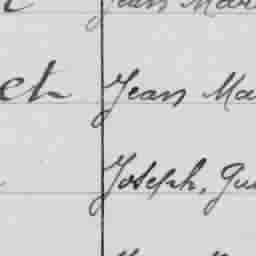 Jean Mar
et Jean Ma
Joseph, Gu